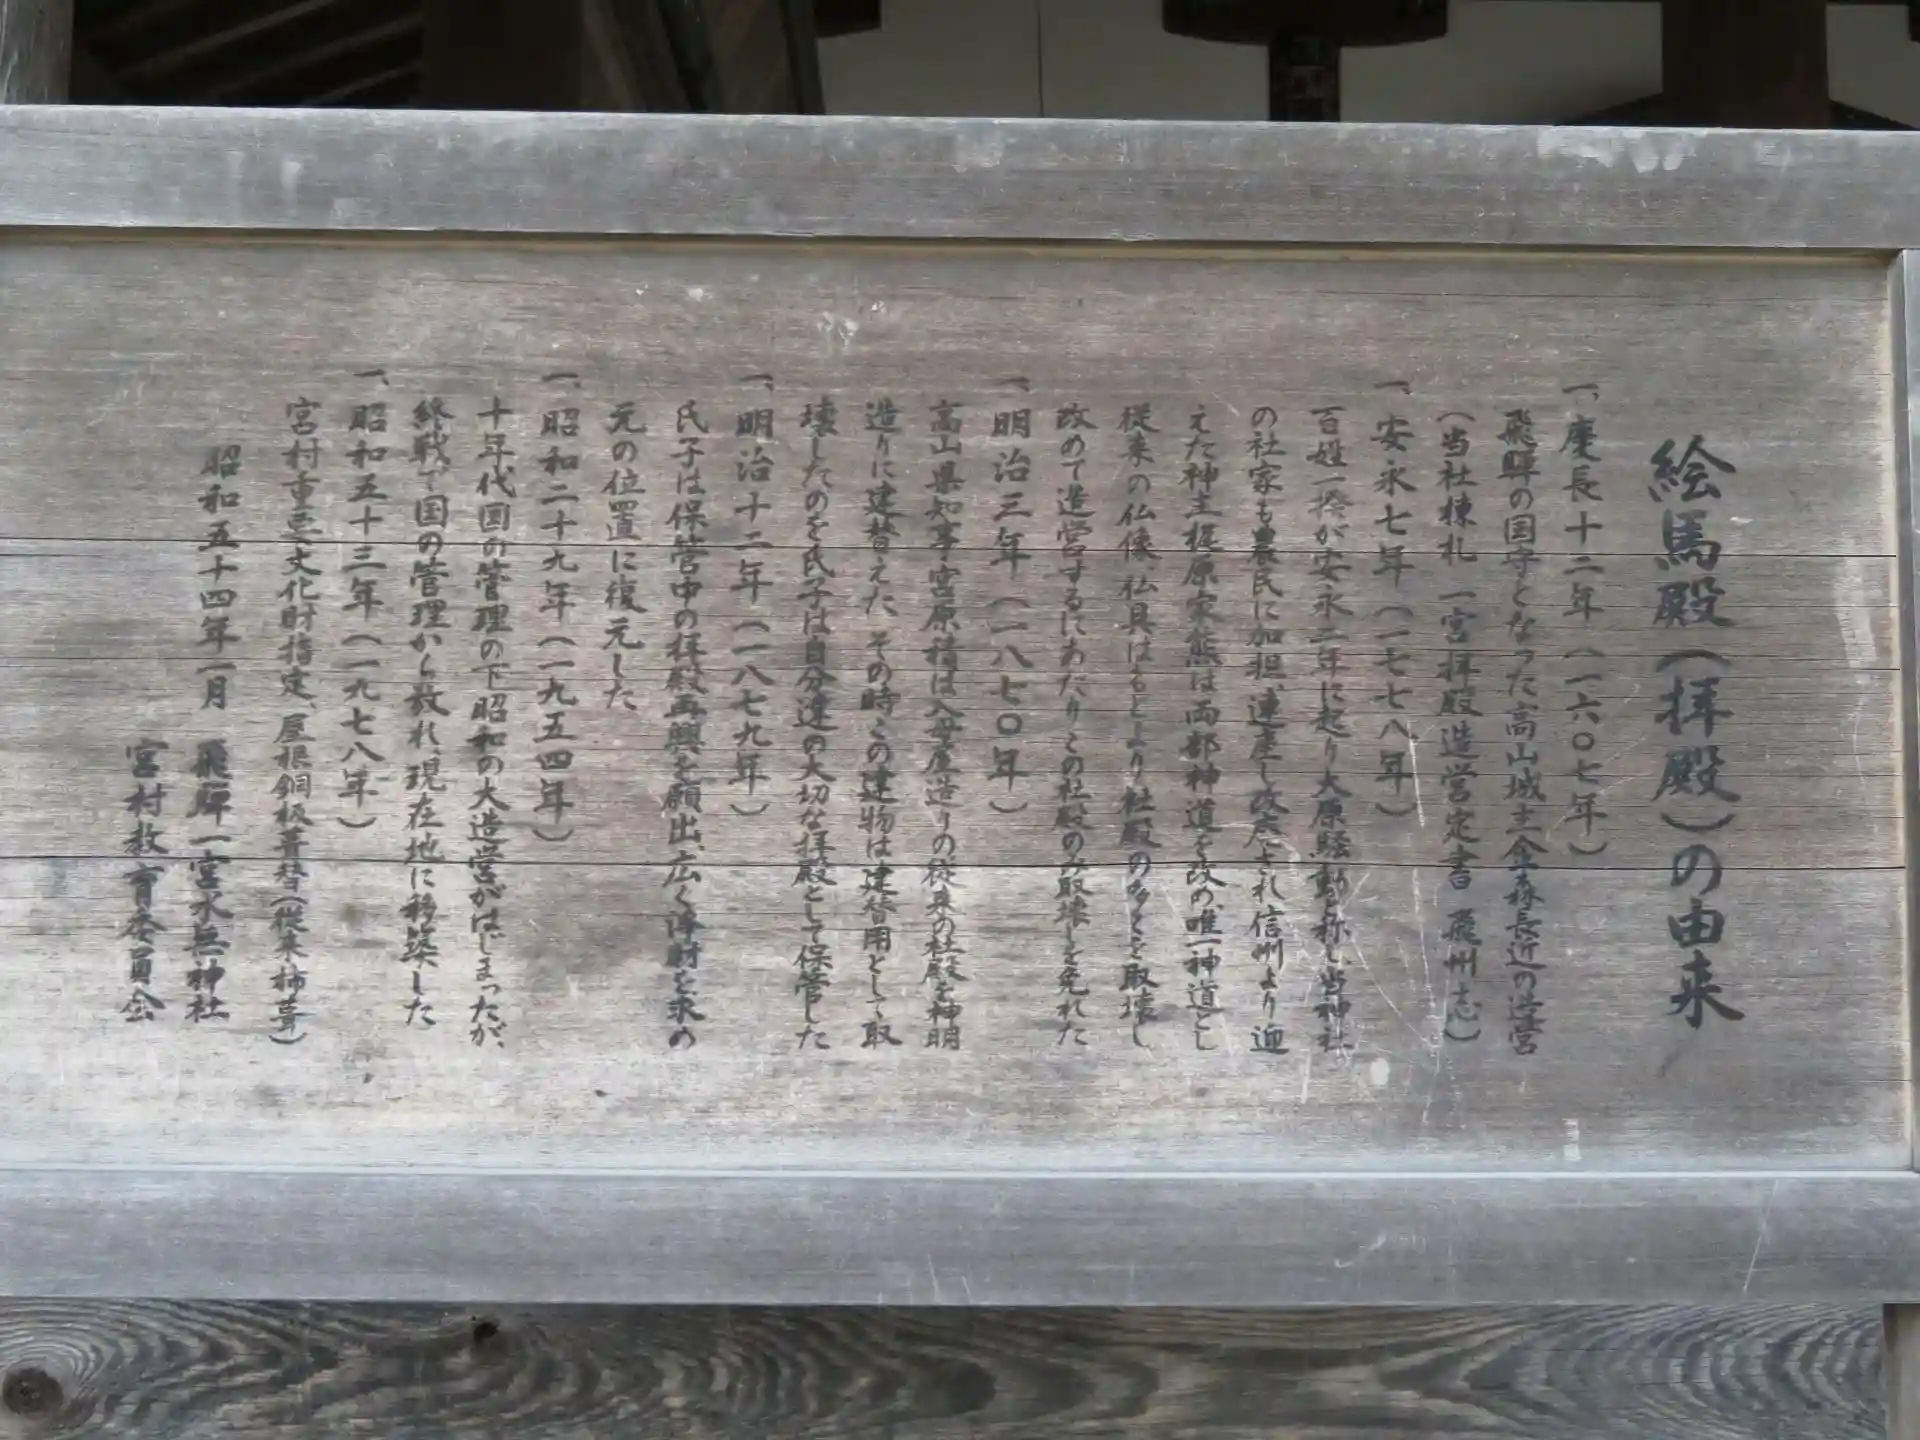 絵馬殿(拝殿)の由来
一、慶長十二年(一六〇七年)
飛騨の国守となった高山城主金森長近の造営
(当社棟札 一宮拝殿造営定書 飛州志)
一、安永七年(一七七八年)
百姓一揆が安永二年に起り大原騒動と称し、当神社
の社家も農民に加担、連座し改廃され信州より迎
えた神主梶原家熊は両部神道を改め、唯一神道とし
従来の仏像仏具はもとより社殿の多くを取壊し
改めて造営するにあたりこの社殿のみ取壊しを免れた
一、明治三年(一八七〇年)
高山県知事宮原積は入母屋造りの従来の社殿を神明
造りに建替えた その時、この建物は建替用として取
壊したのを氏子は自分達の大切な拝殿として保管した
一、明治十二年(一八七九年)
氏子は保管中の拝殿再興を願出、広く浄財を求め
元の位置に復元した
一、昭和二十九年(一九五四年)
十年代国の管理の下昭和の大造営がはじまったが、
終戦で国の管理から放れ、現在地に移築した
一、昭和五十三年(一九七八年)
宮村重要文化財指定、屋根銅板葺替(従来柿葺)
昭和五十四年一月 飛騨一宮水無神社
宮村教育委員会